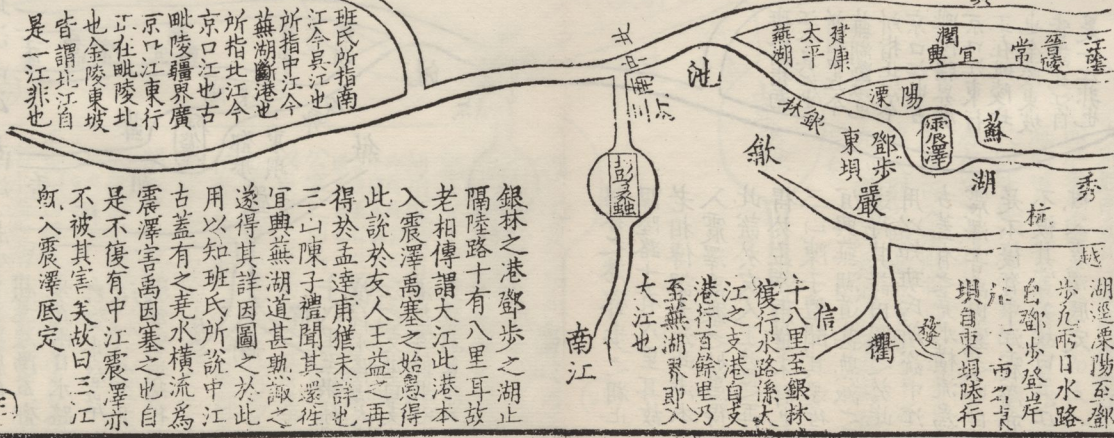 江陰
晉陵
常
宜
潤
興
建康
太平
蕪湖
池
北中南
三江
彭蠡
南江
溧陽
銀林
鄧步
東壩
震澤
蘇
湖
秀
杭
越
歙
嚴
婺
衢
信
湖逕溧陽至鄧
步凡兩日水路
自鄧步登岸
岸 市名
壩自東壩陸行
十八里至銀林
復行水路係大
江之支港自支
港行百餘里乃
至蕪湖界即入
大江也
銀林之港鄧步之湖止
隔陸路十有八里耳故
老相傳謂大江此港本
入震澤禹塞之始愚得
此說於友人王益之再
得於孟達甫猶未詳也
三山陳子禮聞其還往
宜興蕪湖道甚熟諏之
遂得其詳因圖之於此
用以知班氏所說中江
古蓋有之堯水橫流為
震澤害禹因塞之也自
是不復有中江震澤亦
不被其害矣故曰三江
旣入震澤厎定
班氏所指南
江今吳江也
所指中江今
蕪湖斷港也
所指北江今
京口江也古
毗陵疆界廣
京口江東行
正在毗陵北
也金陵東坡
皆謂北江自
是一江非也
三